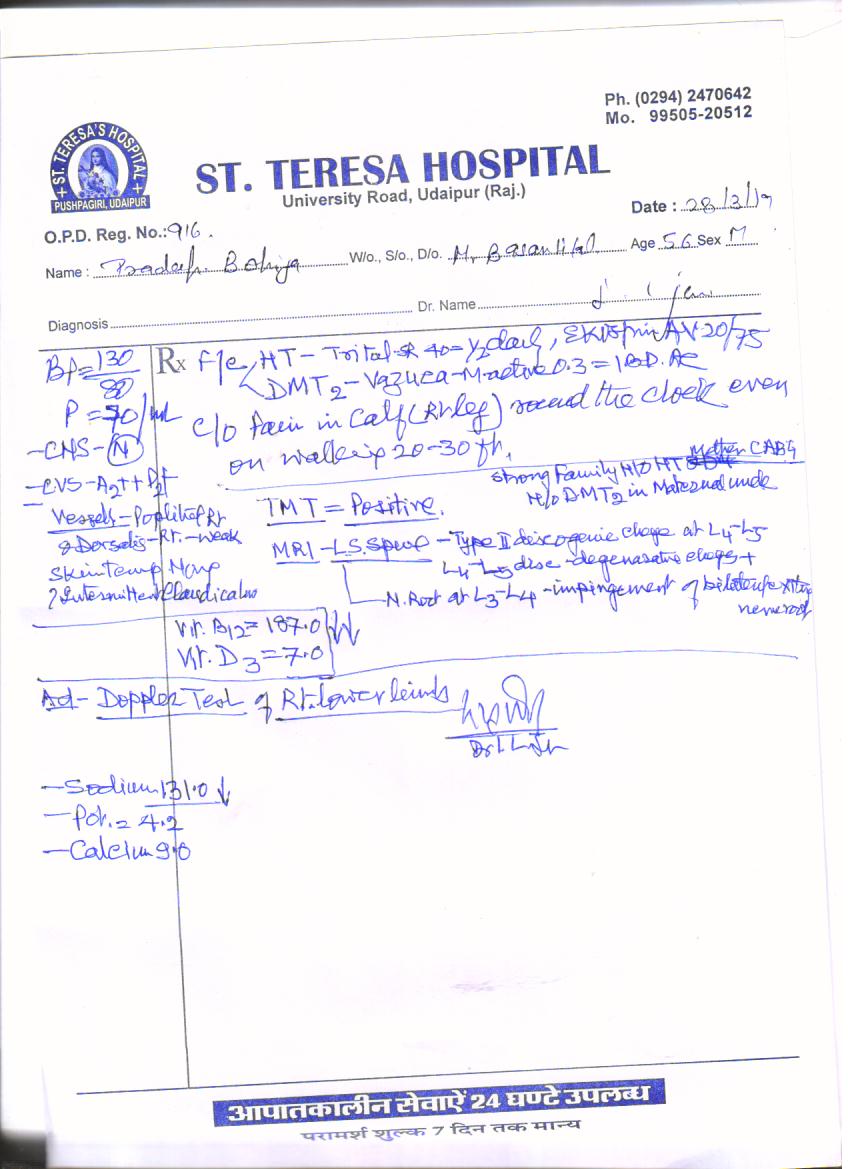 Ph. (0294) 2470642
Mo. 99505-20512
ST. TERESA'S HOSPITAL
PUSHPAGIRI, UDAIPUR
ST. TERESA HOSPITAL
University Road, Udaipur (Raj.)
Date : 28/3/19
O.P.D. Reg. No.: 916.
Name : Pradeep W/o., S/o., D/o. Age 56 Sex M
Diagnosis Dr. Name
BP = 130/80
P = 70/
- CNS - N
- CVS - A2++ P2+
Vessels - Popliteal Rt
& Dorsalis - Rt. - weak
Skin temp
? Intermittent Claudication
Rx F/c HT - 40 = 1/2 daily, AV-20/75
DMT2 - 0.3 = 1 BD. AC
C/o Pain in Calf (Rt leg) round the clock even
on walking 20-30 ft.
Mother CABG
Strong Family H/O HT
H/O DMT2 in Maternal uncle
TMT = Positive.
MRI - L.S. Spine - Type II discogenic change at L4-L5
L4-L5 disc degenerative changes +
N. Root at L3-L4 - impingement of bilateral exiting
nerve root
Vit. B12 = 187.0
Vit. D3 = 7.0
Ad - Doppler Test of Rt. lower limbs
- Sodium 131.0 ↓
- Pot. = 4.2
- Calcium 9.0
आपातकालीन सेवाऐं 24 घण्टे उपलब्ध
परामर्श शुल्क 7 दिन तक मान्य